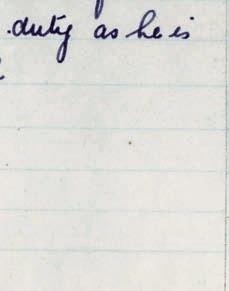 .duty as he is